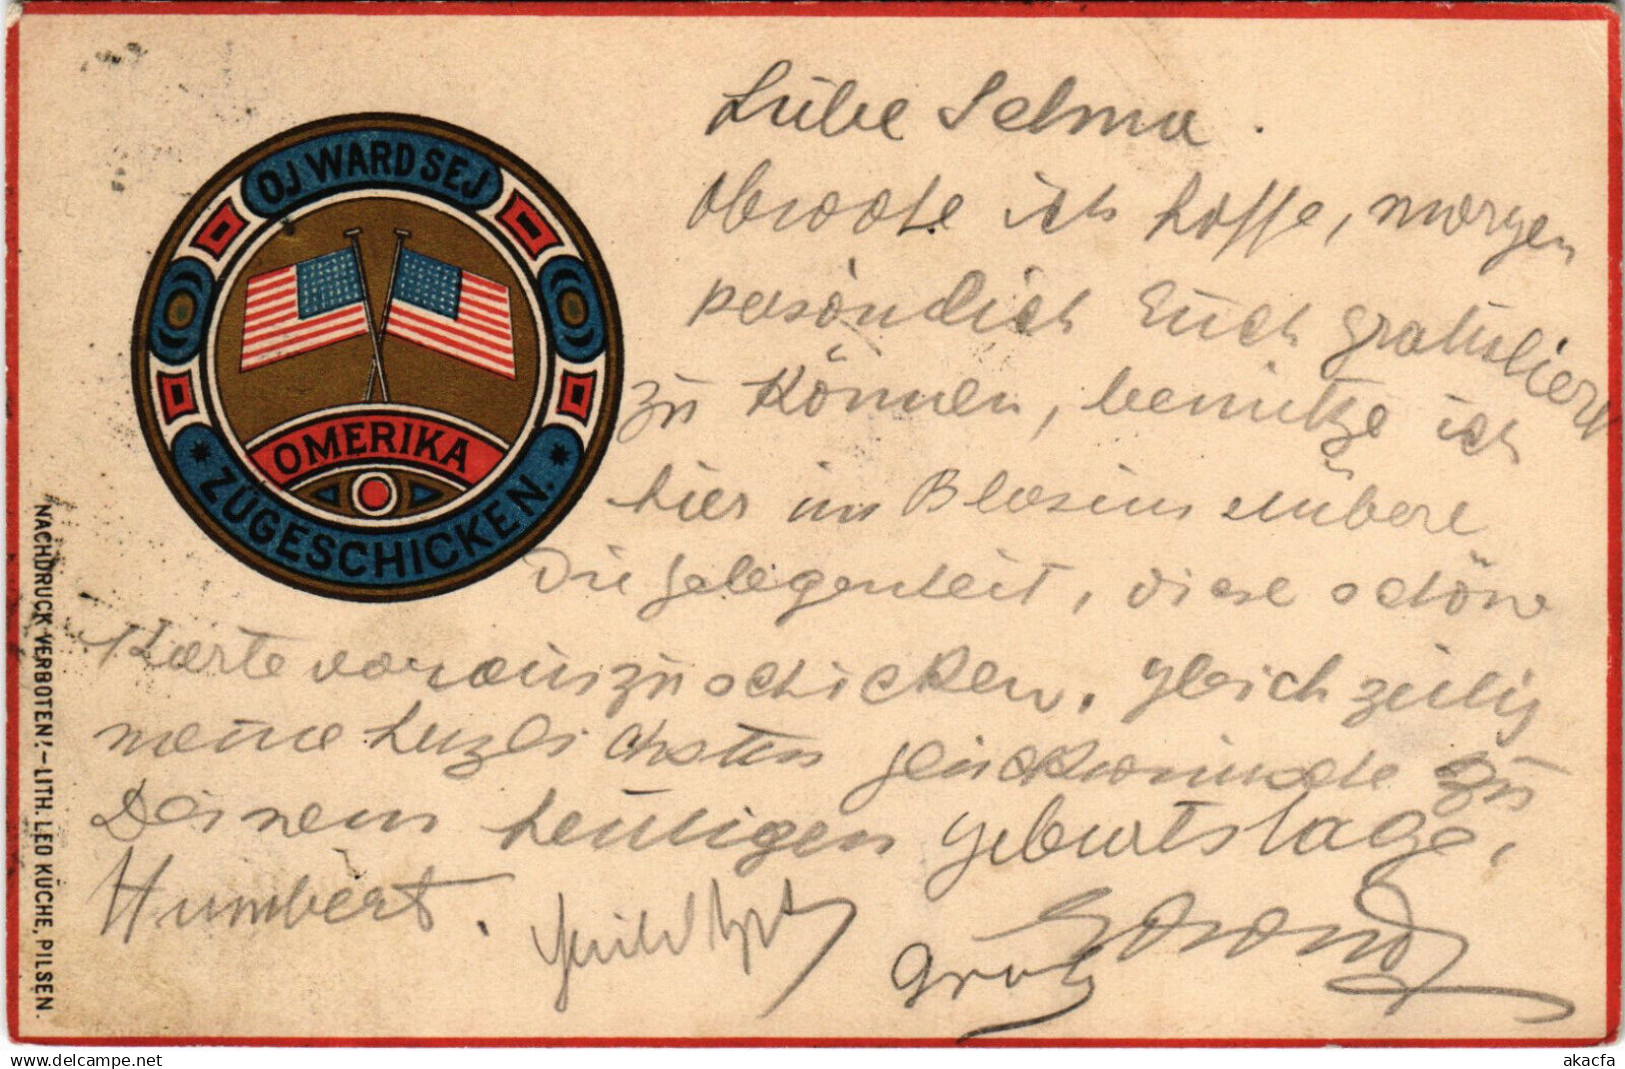 OJ WARD SEJ
OMERIKA
* ZUGESCHICKEN. *
NACHDRUCK VERBOTEN! - LITH. LEO KÜCHE, PILSEN.
Liebe Selma.
Obwohl ich hoffe, morgen
persönlich Euch gratulieren
zu können, benütze ich
hier im
Die Gelegenheit, diese schöne
Karte vorauszuschicken, gleichzeitig
meine herzlichsten Glückwünsche zu
Deinem heutigen Geburtstage.
Humbert.
akpool delcampe.net
akacfa